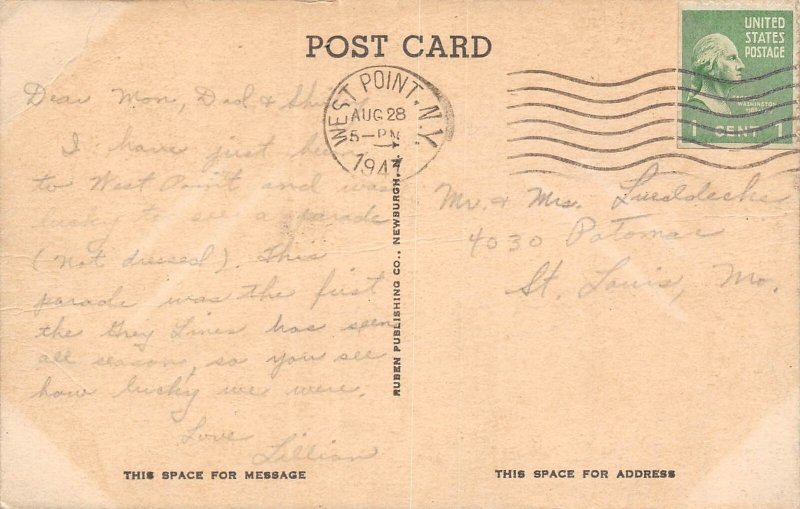 POST CARD
UNITED
STATES
POSTAGE
WASHINGTON
1 CENT 1
WEST POINT, N.Y.
AUG 28
5-PM
194
Dear Mom, Dad, &
I have just been
to West Point and was
lucky to see a parade
(not dressed). This
parade was the first
the Grey Lines has seen
all season, so you see
how lucky we were.
Love
Lillian
RUBEN PUBLISHING CO., NEWBURGH, N.Y.
Mr. & Mrs.
4030 Potomac
St. Louis, Mo.
THIS SPACE FOR MESSAGE
THIS SPACE FOR ADDRESS